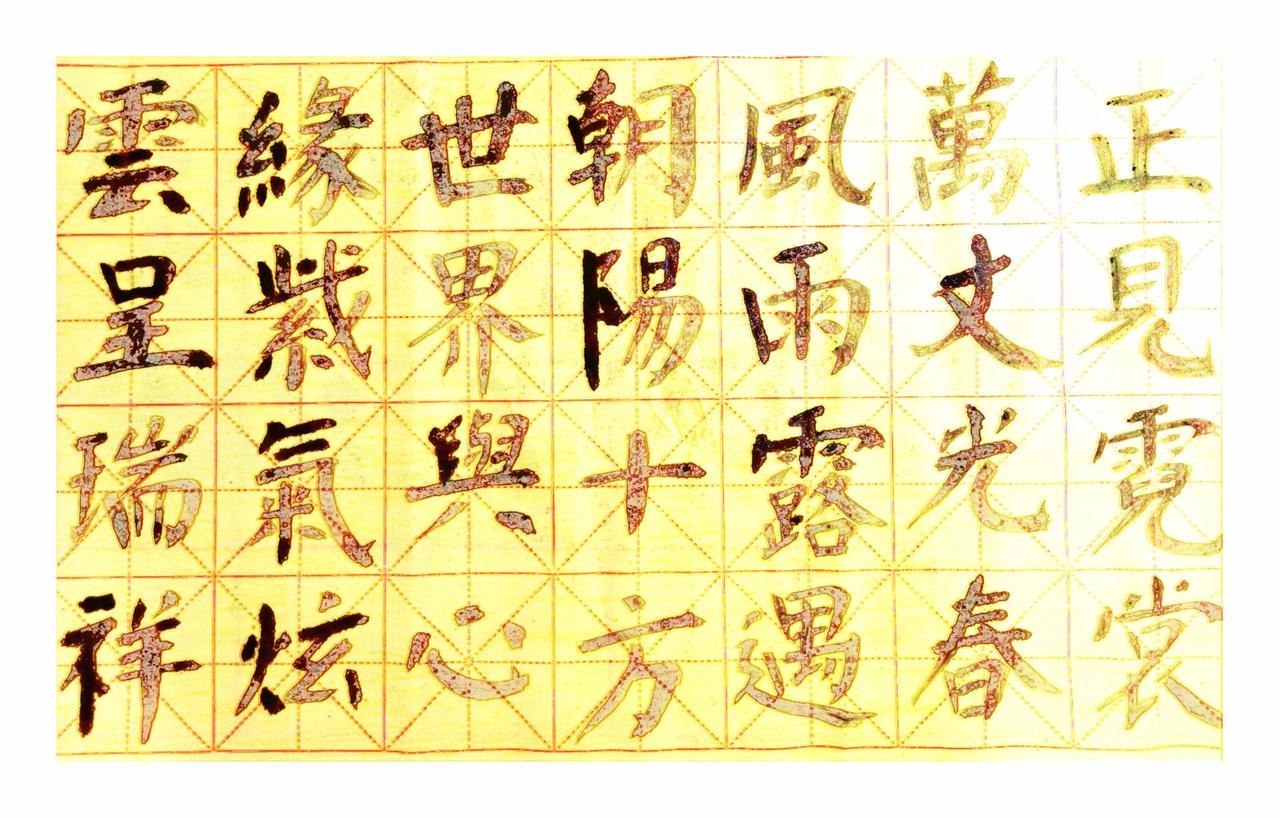 正見霓裳
萬丈光春
風雨露遇
朝陽十方
世界與心
緣紫氣炫
雲呈瑞祥